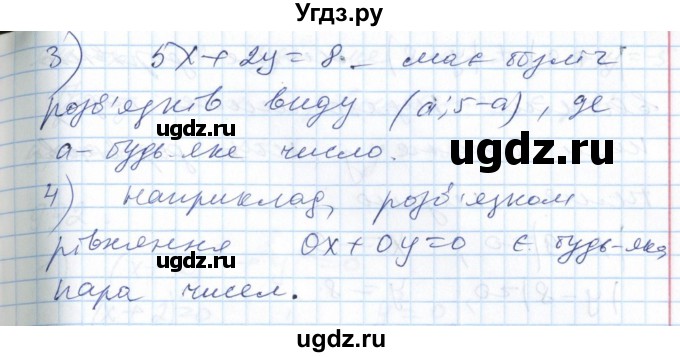 Угдз.ру
3) 5x+2y=8 - має безліч
розв'язків виду (a; 5-a), де
a - будь-яке число.
4) Наприклад, розв'язком
рівняння 0x+0y=0 є будь-яка
пара чисел.
uгдz.ru
uгдz.ru
uгдz.ru
uгдz.ru
uгдz.ru